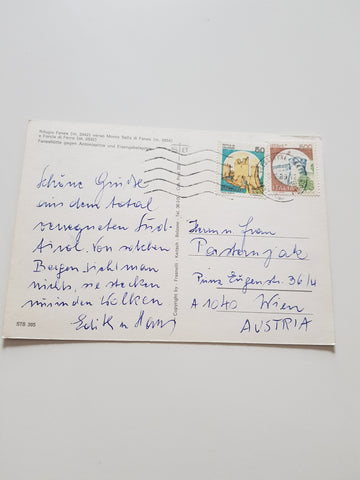 Rifugio Fanes (m. 2042) verso Monte Sella di Fanes (m. 2655)
Faneshütte gegen Antonispitze und Eisengabelspitze
Schöne Grüße
aus dem total
verregneten Süd-
Tirol. Von solchen
Bergen sieht man
nichts, sie stecken
nur in den Wolken
Edith u Hans
STB 395
Copyright by Foto
50
ITALIA
Herrn Frau
Pasternjak
Prinz Eugenstr. 36/4
A 1040 Wien
AUSTRIA